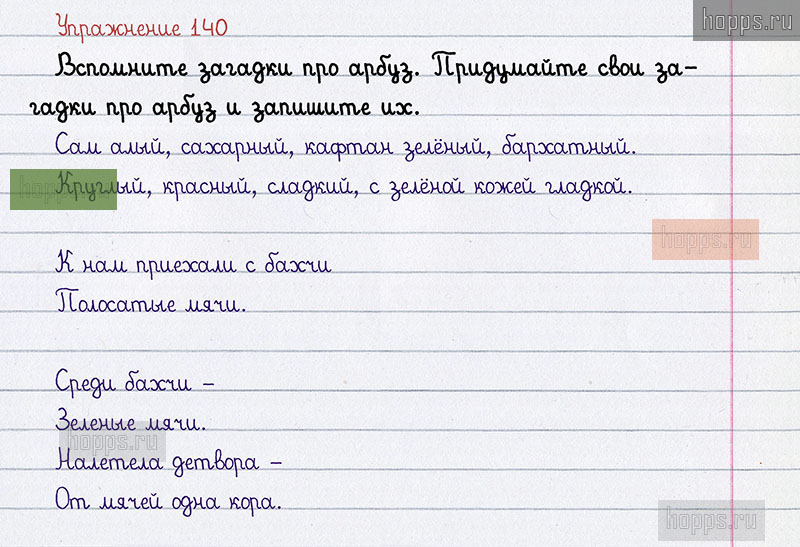 hopps.ru
Упражнение 140
Вспомните загадки про арбуз. Придумайте свои за-
гадки про арбуз и запишите их.
Сам алый, сахарный, кафтан зелёный, бархатный.
Круглый, красный, сладкий, с зелёной кожей гладкой.
hopps.ru
hopps.ru
К нам приехали с бахчи
Полосатые мячи.
Среди бахчи –
Зеленые мячи.
hopps.ru
Налетела детвора –
От мячей одна кора.
hopps.ru